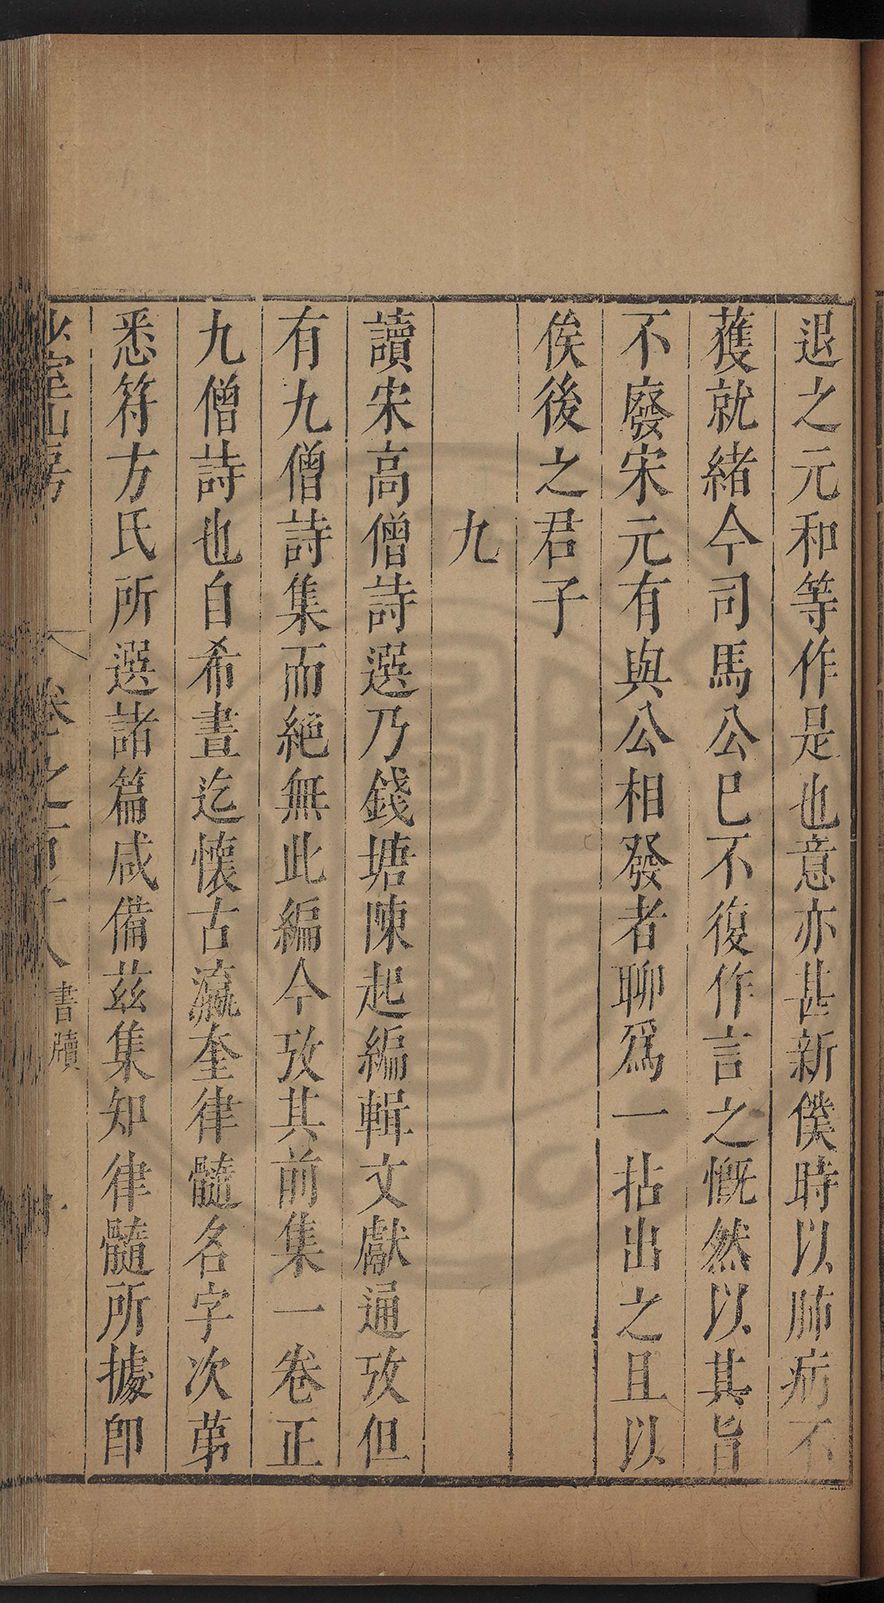 退之元和等作是也意亦甚新僕時以肺病不
獲就緒今司馬公已不復作言之慨然以其旨
不廢宋元有與公相發者聊爲一拈出之且以
俟後之君子
九
讀宋高僧詩選乃錢塘陳起編輯文獻通攷但
有九僧詩集而絕無此編今攷其前集一卷正
九僧詩也自希晝迄懷古瀛奎律髓名字次第
悉符方氏所選諸篇咸備茲集知律髓所據卽
少室山房
卷之百十八 書牘